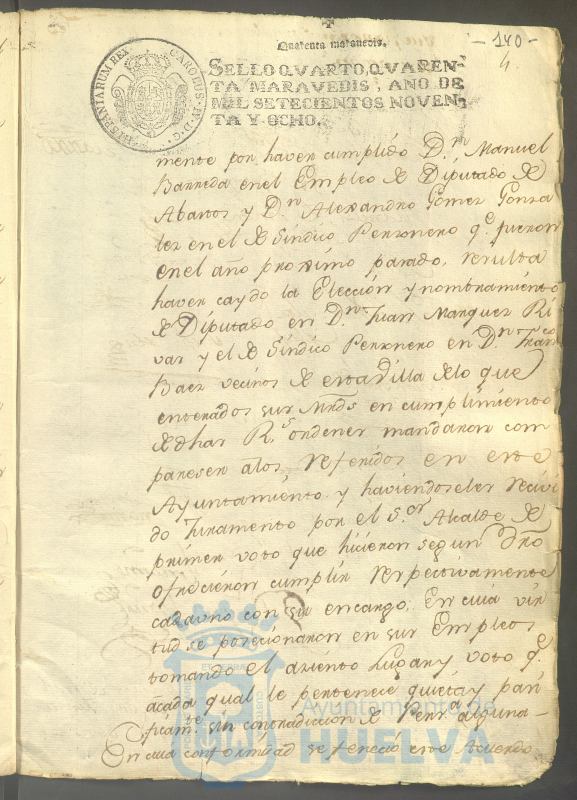 - 140 -
4.
Quarenta maravedis.
SELLO QVARTO, QVAREN-
TA MARAVEDIS, AÑO DE
MIL SETECIENTOS NOVEN-
TA Y OCHO.
CAROLUS IV D.G. HISPANIARUM REX
mente por haver cumplido D.n Manuel
Barreda en el Empleo de Diputado de
Abastos y D.n Alexandro Gomez Gonza
lez en el de Sindico Personero q.e fueron
en el año proximo pasado, resulta
haver caydo la Elección y nombramiento
de Diputado en D.n Juan Marquez Ri
vas y el de Sindico Personero en D.n Fran.co
Baez vecinos de esta Villa de lo que
enterados sus Mrds en cumplimiento
de dhas R.s ordenes mandaron com
parecer a los referidos en este
Ayuntamiento y haviendoseles recivi
do Juramento por el S.or Alcalde de
primer voto que hicieron segun dro
ofrecieron cumplir respectivamente
cada uno con su encargo, En cuia vir
tud se posecionaron en sus Empleos
tomando el asiento Lugar y voto q.e
a cada qual le pertenece quieta y pasi
ficam.te sin contradicion de Pers.a alguna-
En cuia conformidad se feneció este Acuerdo
Ayuntamiento de
HUELVA